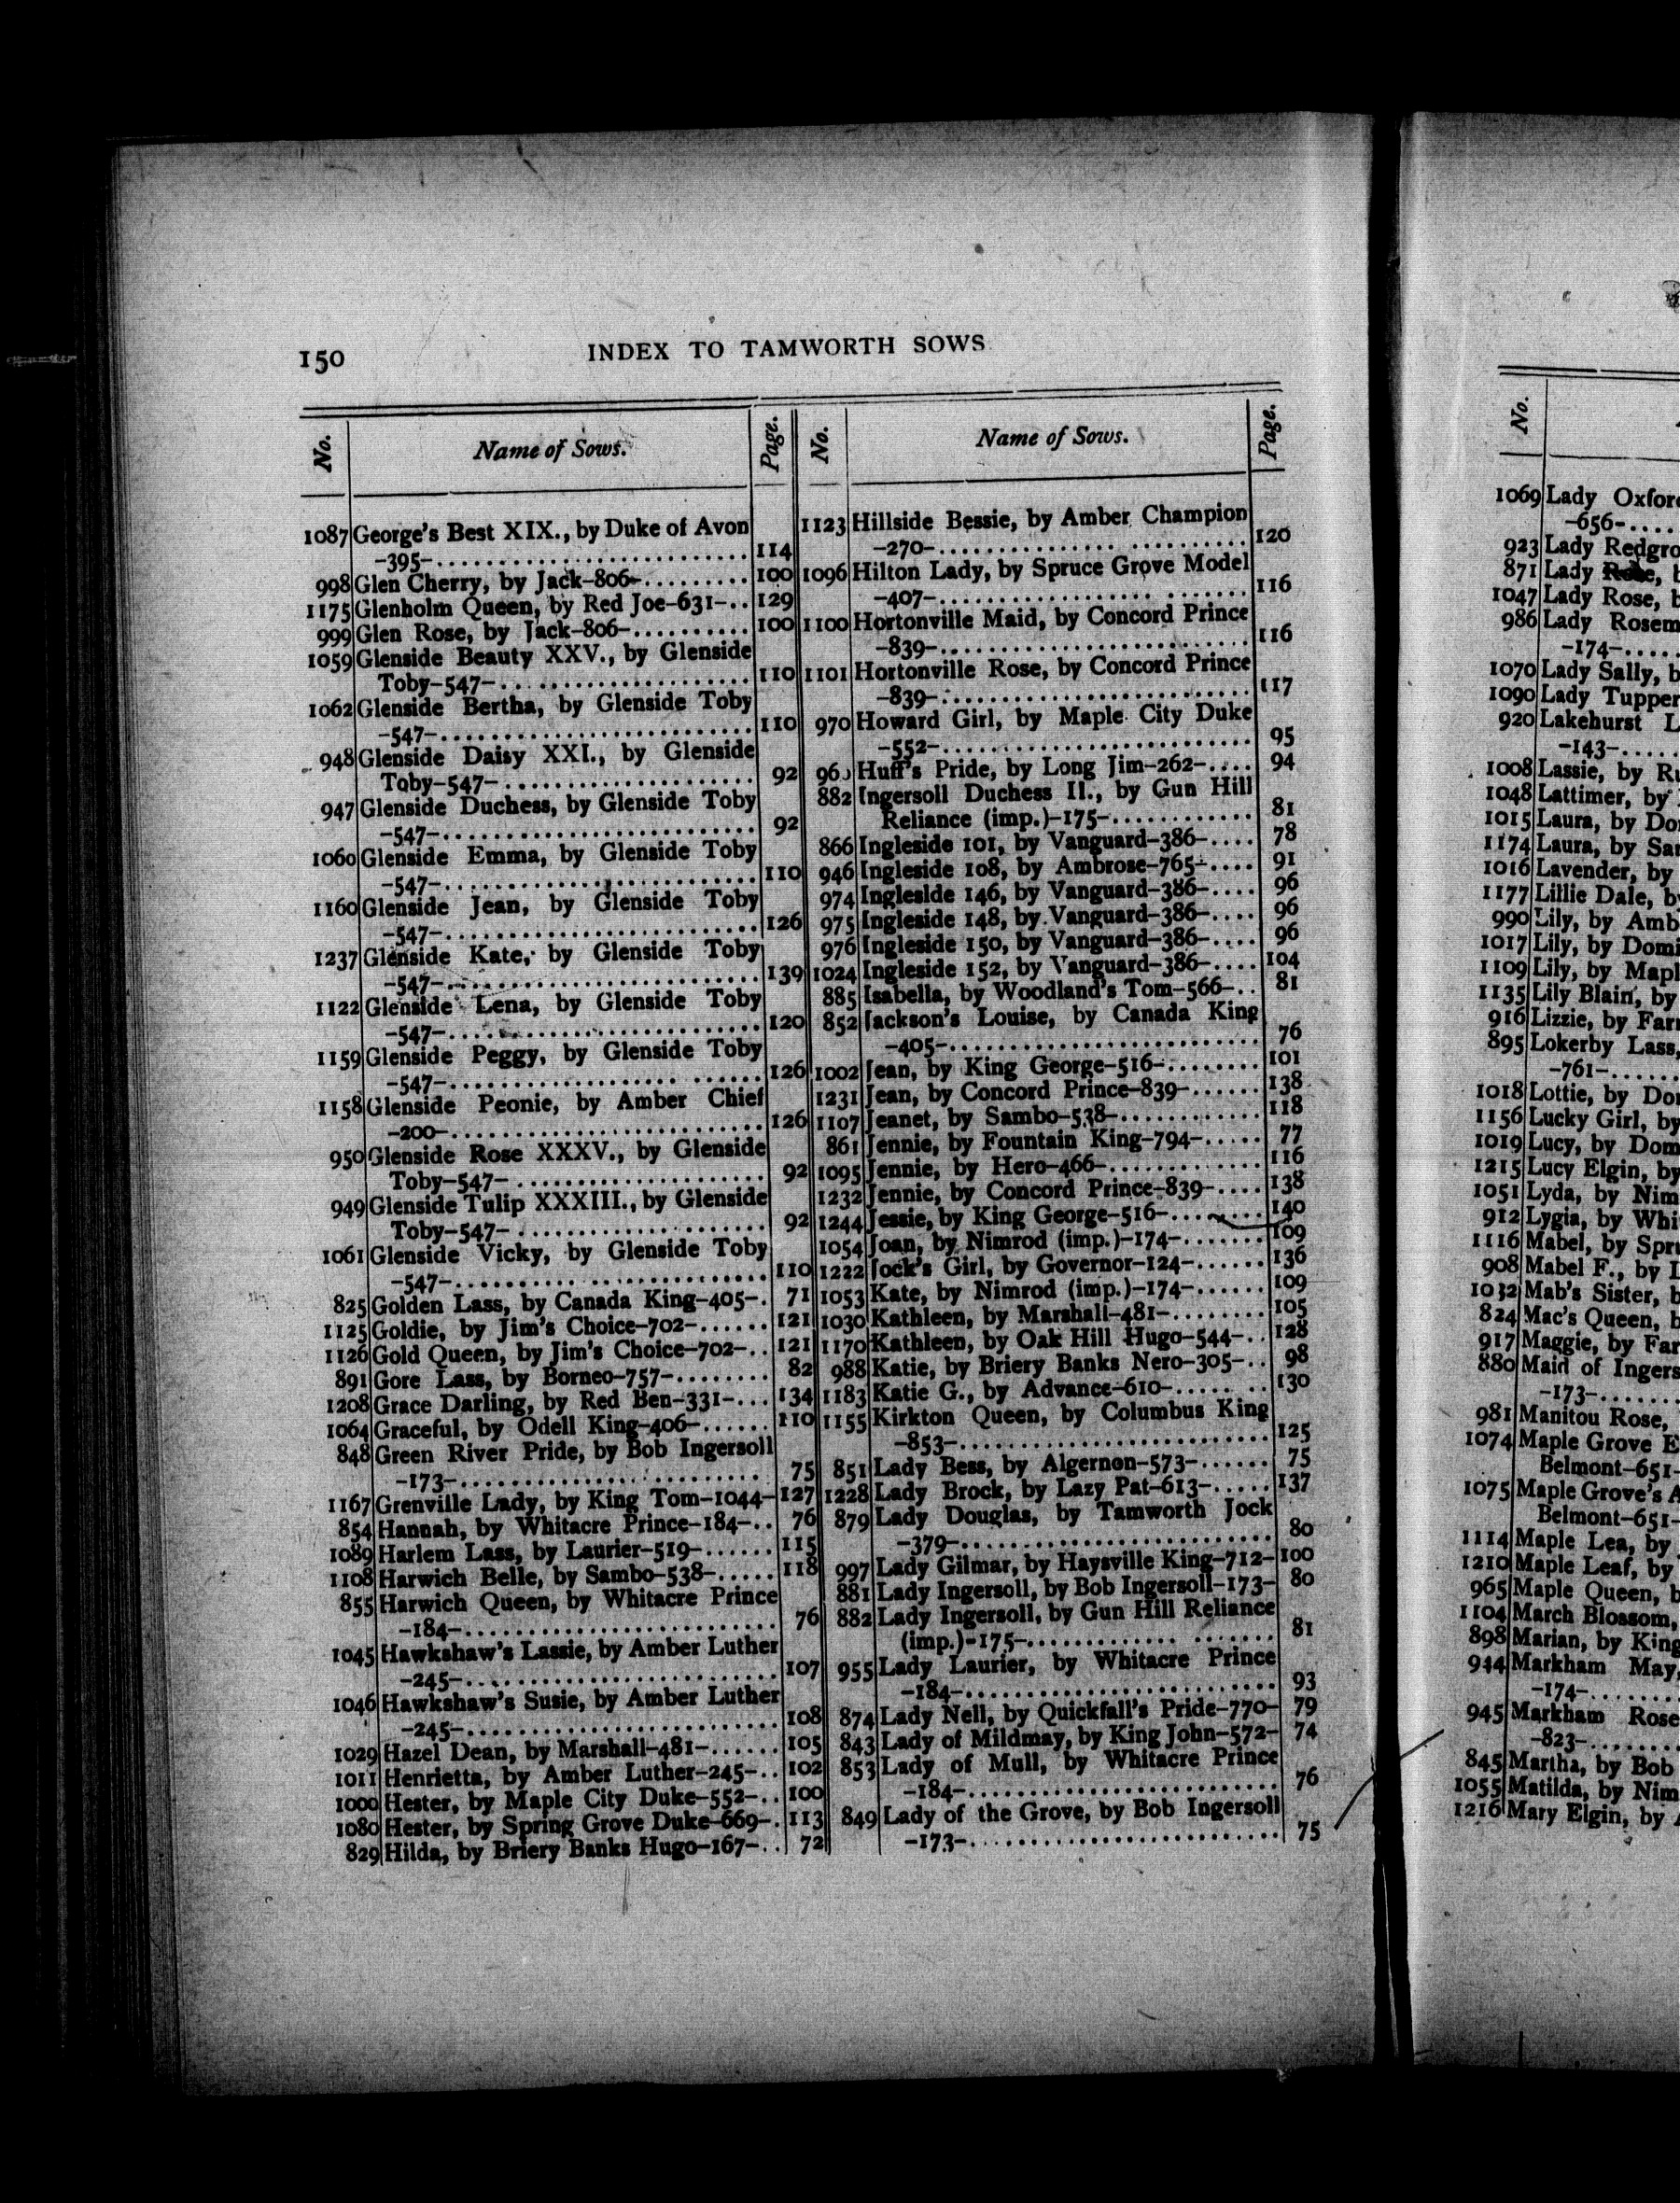 150
INDEX TO TAMWORTH SOWS
No.
Name of Sows.
Page.
1087 George's Best XIX., by Duke of Avon
-395-.......................... 114
998 Glen Cherry, by Jack-806-......... 100
1175 Glenholm Queen, by Red Joe-631-.. 129
999 Glen Rose, by Jack-806-.......... 100
1059 Glenside Beauty XXV., by Glenside
Toby-547-..................... 110
1062 Glenside Bertha, by Glenside Toby
-547-.......................... 110
948 Glenside Daisy XXI., by Glenside
Toby-547-..................... 92
947 Glenside Duchess, by Glenside Toby
-547-.......................... 92
1060 Glenside Emma, by Glenside Toby
-547-.......................... 110
1160 Glenside Jean, by Glenside Toby
-547-.......................... 126
1237 Glenside Kate, by Glenside Toby
-547-.......................... 139
1122 Glenside Lena, by Glenside Toby
-547-.......................... 120
1159 Glenside Peggy, by Glenside Toby
-547-.......................... 126
1158 Glenside Peonie, by Amber Chief
-200-.......................... 126
950 Glenside Rose XXXV., by Glenside
Toby-547-..................... 92
949 Glenside Tulip XXXIII., by Glenside
Toby-547-..................... 92
1061 Glenside Vicky, by Glenside Toby
-547-.......................... 110
825 Golden Lass, by Canada King-405-. 71
1125 Goldie, by Jim's Choice-702-...... 121
1126 Gold Queen, by Jim's Choice-702-.. 121
891 Gore Lass, by Borneo-757-........ 82
1208 Grace Darling, by Red Ben-331-... 134
1064 Graceful, by Odell King-406-...... 110
848 Green River Pride, by Bob Ingersoll
-173-.......................... 75
1167 Grenville Lady, by King Tom-1044- 127
854 Hannah, by Whitacre Prince-184-.. 76
1089 Harlem Lass, by Laurier-519-...... 115
1108 Harwich Belle, by Sambo-538-..... 118
855 Harwich Queen, by Whitacre Prince
-184-.......................... 76
1045 Hawkshaw's Lassie, by Amber Luther
-245-.......................... 107
1046 Hawkshaw's Susie, by Amber Luther
-245-.......................... 108
1029 Hazel Dean, by Marshall-481-...... 105
1011 Henrietta, by Amber Luther-245-.. 102
1000 Hester, by Maple City Duke-552-.. 100
1080 Hester, by Spring Grove Duke-669-. 113
829 Hilda, by Briery Banks Hugo-167-.. 72
No.
Name of Sows.
Page.
1123 Hillside Bessie, by Amber Champion
-270-.......................... 120
1096 Hilton Lady, by Spruce Grove Model
-407-.......................... 116
1100 Hortonville Maid, by Concord Prince
-839-.......................... 116
1101 Hortonville Rose, by Concord Prince
-839-.......................... 117
970 Howard Girl, by Maple City Duke
-552-.......................... 95
96 Huff's Pride, by Long Jim-262-.... 94
882 Ingersoll Duchess II., by Gun Hill
Reliance (imp.)-175-............ 81
866 Ingleside 101, by Vanguard-386-.... 78
946 Ingleside 108, by Ambrose-765-.... 91
974 Ingleside 146, by Vanguard-386-.... 96
975 Ingleside 148, by Vanguard-386-.... 96
976 Ingleside 150, by Vanguard-386-.... 96
1024 Ingleside 152, by Vanguard-386-.... 104
885 Isabella, by Woodland's Tom-566-.. 81
852 Jackson's Louise, by Canada King
-405-.......................... 76
1002 Jean, by King George-516-........ 101
1231 Jean, by Concord Prince-839-...... 138
1107 Jeanet, by Sambo-538-............ 118
861 Jennie, by Fountain King-794-..... 77
1095 Jennie, by Hero-466-............. 116
1232 Jennie, by Concord Prince-839-.... 138
1244 Jessie, by King George-516-........ 140
1054 Joan, by Nimrod (imp.)-174-....... 109
1222 Jock's Girl, by Governor-124-...... 136
1053 Kate, by Nimrod (imp.)-174-...... 109
1030 Kathleen, by Marshall-481-........ 105
1170 Kathleen, by Oak Hill Hugo-544-.. 128
988 Katie, by Briery Banks Nero-305-.. 98
1183 Katie G., by Advance-610-........ 130
1155 Kirkton Queen, by Columbus King
-853-.......................... 125
851 Lady Bess, by Algernon-573-...... 75
1228 Lady Brock, by Lazy Pat-613-..... 137
879 Lady Douglas, by Tamworth Jock
-379-.......................... 80
997 Lady Gilmar, by Haysville King-712- 100
881 Lady Ingersoll, by Bob Ingersoll-173- 80
882 Lady Ingersoll, by Gun Hill Reliance
(imp.)-175-.................... 81
955 Lady Laurier, by Whitacre Prince
-184-.......................... 93
874 Lady Nell, by Quickfall's Pride-770- 79
843 Lady of Mildmay, by King John-572- 74
853 Lady of Mull, by Whitacre Prince
-184-.......................... 76
849 Lady of the Grove, by Bob Ingersoll
-173-.......................... 75
No.
1069 Lady Oxford
-656-....
923 Lady Redgro
871 Lady
1047 Lady Rose, b
986 Lady Rosem
-174-.....
1070 Lady Sally, b
1090 Lady Tupper
920 Lakehurst L
-143-....
1008 Lassie, by Ru
1048 Lattimer, by
1015 Laura, by Dom
1174 Laura, by Sam
1016 Lavender, by
1177 Lillie Dale, by
990 Lily, by Amb
1017 Lily, by Domi
1109 Lily, by Mapl
1135 Lily Blain, by
916 Lizzie, by Farm
895 Lokerby Lass,
-761-......
1018 Lottie, by Dom
1156 Lucky Girl, by
1019 Lucy, by Dom
1215 Lucy Elgin, by
1051 Lyda, by Nim
912 Lygia, by Whi
1116 Mabel, by Spru
908 Mabel F., by L
1032 Mab's Sister, b
824 Mac's Queen, b
917 Maggie, by Far
880 Maid of Ingers
-173-.......
981 Manitou Rose,
1074 Maple Grove E
Belmont-651-
1075 Maple Grove's A
Belmont-651-
1114 Maple Lea, by
1210 Maple Leaf, by
965 Maple Queen, b
1104 March Blossom,
898 Marian, by King
944 Markham May,
-174-.......
945 Markham Rose
-823-.......
845 Martha, by Bob
1055 Matilda, by Nim
1216 Mary Elgin, by